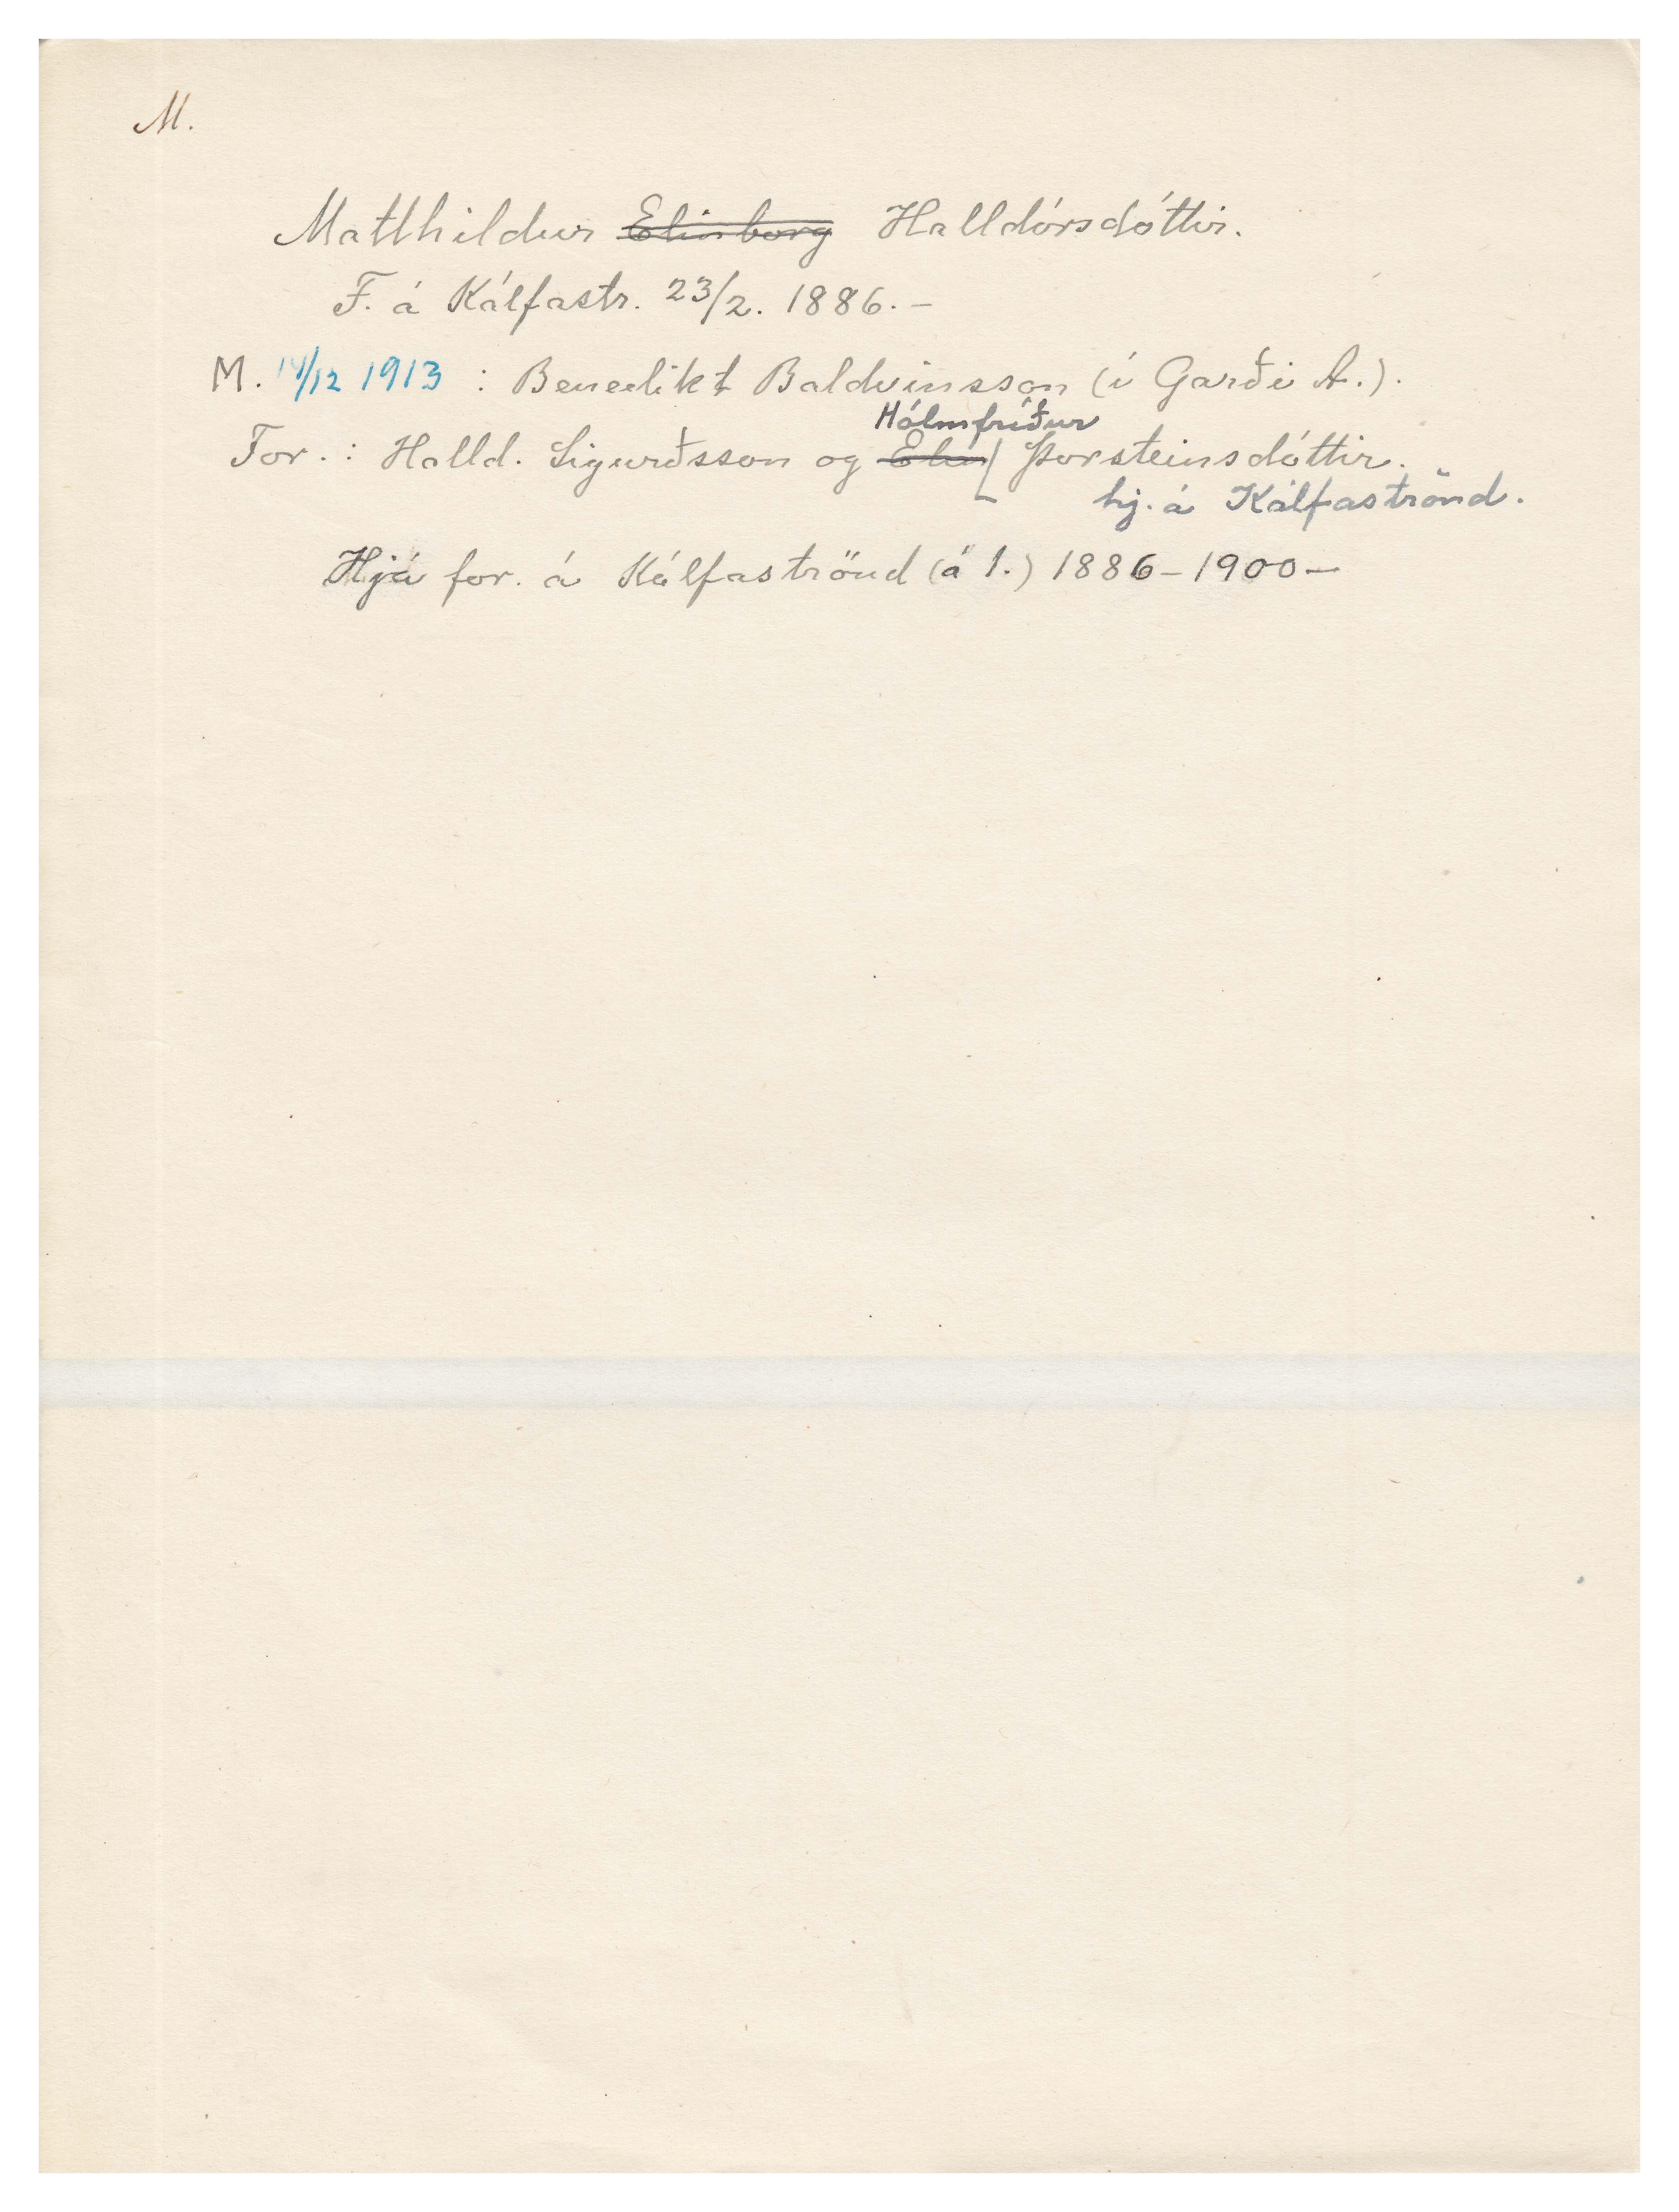 M.
Matthildur Elinborg Halldórsdóttir.
F. á Kálfastr. 23/2. 1886. –
M. 14/12 1913 : Benedikt Baldvinsson (í Garði A.).
Hólmfríður
For. : Halld. Sigurðsson og Elín Þorsteinsdóttir.
hj. á Kálfaströnd.
Hjá for. á Kálfaströnd (á 1.) 1886 – 1900 –